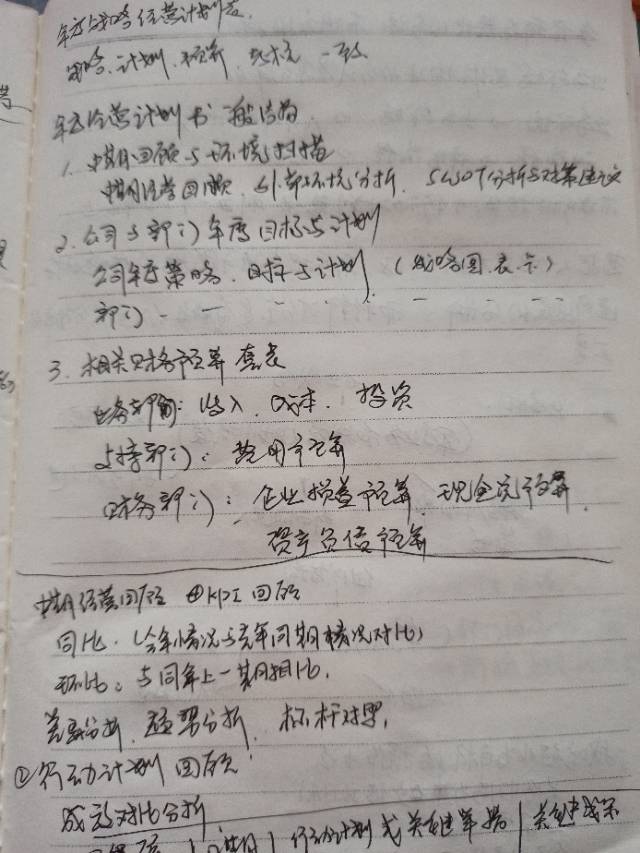 年度战略经营计划是
策略、计划、预算 与考核 一致
年度经营计划书 一般结构
1. 中期回顾与环境扫描
中期经营回顾，外部环境分析，SWOT分析与对策建议
2. 公司与部门年度目标与计划
公司年度策略、目标与计划 （战略图表示）
部门 - - - - - - - -
3. 相关财务预算套表
业务部门：收入、成本、投资
支持部门：费用预算
财务部门：企业损益预算、现金流预算、
资产负债预算
中期经营回顾 ①KPI回顾
同比：（今年情况与去年同期情况对比）
环比：与同年上一期相比。
差异分析、趋势分析、标杆对照，
②行动计划回顾
成效对比分析
行动计划或关键举措 | 关键成果